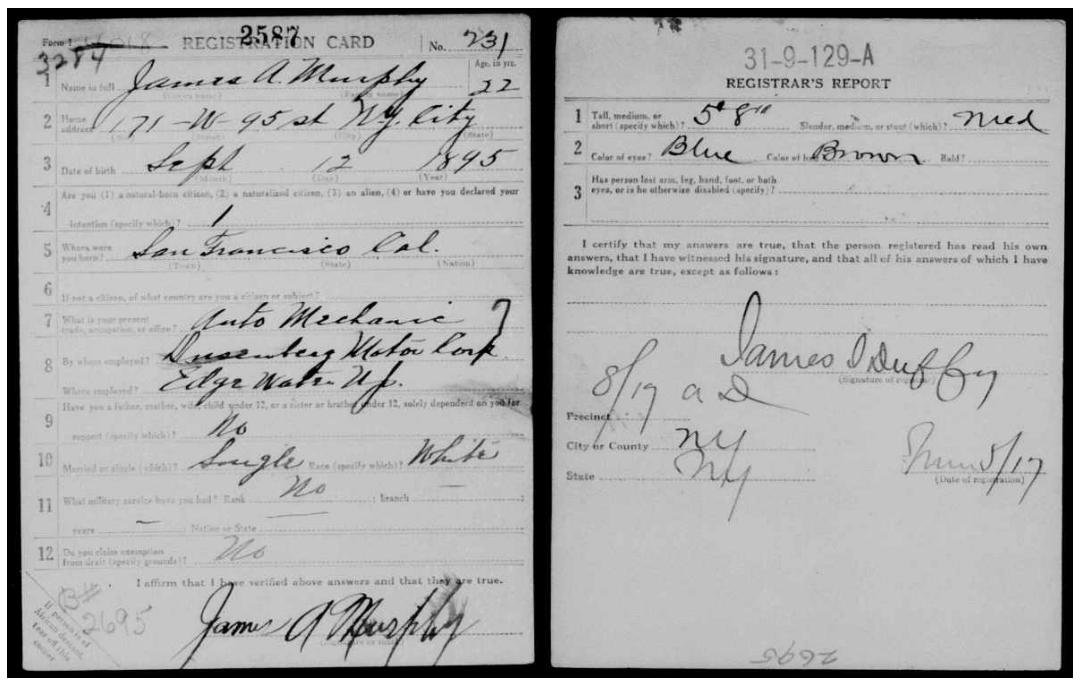 2587
Form 1 REGISTRATION CARD No. 231
3284
1 Name in full James A. Murphy Age, in yrs. 22
2 Home address 171-W-95 st Ny. City
(State)
3 Date of birth Sept 12 1895
(Month) (Day) (Year)
4 Are you (1) a natural-born citizen, (2) a naturalized citizen, (3) an alien, (4) or have you declared your
intention (specify which)? 1
5 Where were you born? San Francisco Cal.
(Town) (State) (Nation)
6 If not a citizen, of what country are you a citizen or subject?
7 What is your present trade, occupation, or office? Auto Mechanic 7
8 By whom employed? Dusenberg Motor Corp.
Where employed? Edge Water N.J.
9 Have you a father, mother, wife, child under 12, or a sister or brother under 12, solely dependent on you for
support (specify which)? No
10 Married or single (which)? Single Race (specify which)? White
11 What military service have you had? Rank No ; branch —
years — Nation or State
12 Do you claim exemption from draft (specify grounds)? No
I affirm that I have verified above answers and that they are true.
James A Murphy
B#
2695
If person is of
African descent,
tear off this
corner
31-9-129-A
REGISTRAR'S REPORT
1 Tall, medium, or short (specify which)? 5' 8" Slender, medium, or stout (which)? Med
2 Color of eyes? Blue Color of hair Brown Bald?
3 Has person lost arm, leg, hand, foot, or both
eyes, or is he otherwise disabled (specify)?
I certify that my answers are true, that the person registered has read his own
answers, that I have witnessed his signature, and that all of his answers of which I have
knowledge are true, except as follows:
James J Duffy
(Signature of registrar)
8/17 A D
Precinct
City or County NY
State NY
June 5/17
(Date of registration)
2695